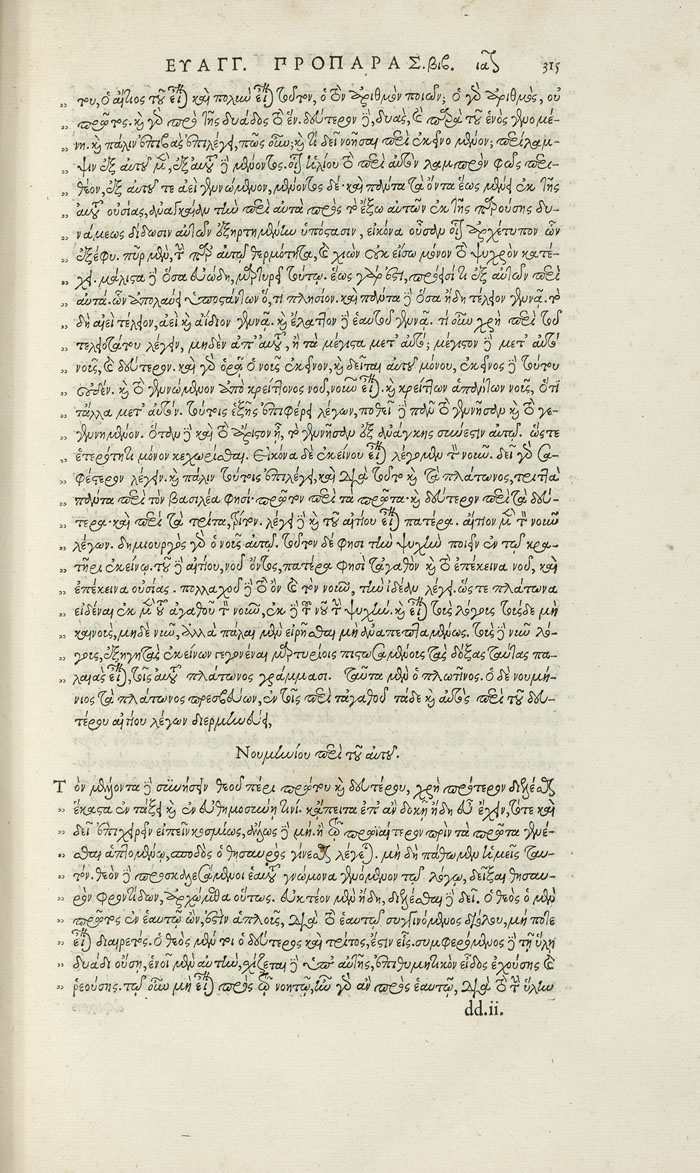 ΕΥΑΓΓ. ΠΡΟΠΑΡΑΣ. βιβ. ια 315
του, ὁ αἴτιος τοῦ εἶναι καὶ πολὺν εἶναι τοῦτον, ὁ τὸν ἀριθμὸν ποιῶν; ὁ γὰρ ἀριθμὸς, οὐ
πρῶτος. καὶ γὰρ πρὸ τῆς δυάδος τὸ ἕν. δεύτερον δὲ, δυὰς, καὶ παρὰ τοῦ ἑνὸς γενομέ-
νη. καὶ πάλιν ὑποβὰς ἐπιλέγει, πῶς οὖν; καὶ τί δεῖ νοῆσαι περὶ ἐκεῖνο μένον; περίλαμ-
ψιν ἐξ αὐτοῦ μὲν, ἐξ αὐτοῦ δὲ μένοντος. οἷον ἡλίου τὸ περὶ αὐτὸν λαμπρὸν φῶς περι-
θέον, ἐξ αὐτοῦ τε ἀεὶ γεννώμενον, μένοντος δέ. καὶ πάντα τὰ ὄντα ἕως μένει ἐκ τῆς
αὐτῶν οὐσίας, ἀναγκαίαν τὴν περὶ αὐτὰ πρὸς τὸ ἔξω αὐτῶν ἐκ τῆς παρούσης δυ-
νάμεως δίδωσιν αὐτῶν ἐξηρτημένην ὑπόστασιν, εἰκόνα οὖσαν οἷον ἀρχετύπων ὧν
ἐξέφυ. πῦρ μὲν, τὴν παρ' αὐτοῦ θερμότητα, καὶ χιὼν οὐκ εἴσω μόνον τὸ ψυχρὸν κατέ-
χει. μάλιστα δὲ ὅσα εὐώδη, μαρτυρεῖ τούτῳ. ἕως γάρ ἐστι, πρόεισί τι ἐξ αὐτῶν περὶ
αὐτά. ὧν ἀπολαύει ὑποστάντων ὅ, τι πλησίον. καὶ πάντα δὲ ὅσα ἤδη τέλεια γεννᾷ. τὸ
δὴ ἀεὶ τέλειον, ἀεὶ καὶ ἀΐδιον γεννᾷ. καὶ ἔλαττον δὲ ἑαυτοῦ γεννᾷ. τί οὖν χρὴ περὶ τοῦ
τελειοτάτου λέγειν, μηδὲν ἀπ' αὐτοῦ, ἢ τὰ μέγιστα μετ' αὐτό; μέγιστον δὲ μετ' αὐτὸ
νοῦς, καὶ δεύτερον. καὶ γὰρ ὁρᾷ ὁ νοῦς ἐκεῖνον, καὶ δεῖται αὐτοῦ μόνου, ἐκεῖνος δὲ τούτου
οὐδέν. καὶ τὸ γεννώμενον ἀπὸ κρείττονος νοῦ, νοῦν εἶναι. καὶ κρείττων ἁπάντων νοῦς, ὅτι
τἆλλα μετ' αὐτόν. τούτοις ἑξῆς ἐπιφέρει λέγων, ποθεῖ δὲ πᾶν τὸ γεννῆσαν καὶ τὸ γε-
γεννημένον. ὅταν δὲ καὶ τὸ ἄριστον ᾖ, τὸ γεννῆσαν ἐξ ἀνάγκης σύνεστιν αὐτῷ. ὥστε
ἑτερότητι μόνον κεχωρίσθαι. Εἰκόνα δὲ ἐκείνου εἶναι λέγομεν τὸν νοῦν. δεῖ γὰρ σα-
φέστερον λέγειν. καὶ πάλιν τούτοις ἐπιλέγει, καὶ διὰ τοῦτο καὶ τὰ πλάτωνος, τριττὰ
πάντα περὶ τὸν βασιλέα φησί. πρῶτον περὶ τὰ πρῶτα. καὶ δεύτερον περὶ τὰ δεύ-
τερα. καὶ περὶ τὰ τρίτα, τρίτον. λέγει δὲ καὶ τοῦ αἰτίου εἶναι πατέρα. αἴτιον μὲν τὸν νοῦν
λέγων. δημιουργὸς γὰρ ὁ νοῦς αὐτῷ. τοῦτον δέ φησι τὴν ψυχὴν ποιεῖν ἐν τῷ κρα-
τῆρι ἐκείνῳ. τοῦ δὲ αἰτίου, νοῦ ὄντος, πατέρα φησὶ τἀγαθὸν καὶ τὸ ἐπέκεινα νοῦ, καὶ
ἐπέκεινα οὐσίας. πολλαχοῦ δὲ τὸ ὂν καὶ τὸν νοῦν, τὴν ἰδέαν λέγει. ὥστε πλάτωνα
εἰδέναι ἐκ μὲν τοῦ ἀγαθοῦ τὸν νοῦν, ἐκ δὲ τοῦ νοῦ τὴν ψυχήν. καὶ εἶναι τοὺς λόγους τούσδε μὴ
καινοὺς, μηδὲ νῦν, ἀλλὰ πάλαι μὲν εἰρῆσθαι μὴ ἀναπεπταμένως. τοὺς δὲ νῦν λό-
γους, ἐξηγητὰς ἐκείνων γεγονέναι μαρτυρίοις πιστωσαμένοις τὰς δόξας ταύτας πα-
λαιὰς εἶναι, τοῖς αὐτοῦ πλάτωνος γράμμασι. Ταῦτα μὲν ὁ πλωτῖνος. Ὁ δὲ νουμή-
νιος τὰ πλάτωνος πρεσβεύων, ἐν τοῖς περὶ τἀγαθοῦ τάδε καὶ αὐτὸς περὶ τοῦ δευ-
τέρου αἰτίου λέγων διερμηνεύει,
Νουμηνίου περὶ τοῦ αὐτοῦ.
Τὸν μέλλοντα δὲ συνήσειν θεοῦ πέρι πρώτου καὶ δευτέρου, χρὴ πρότερον διελέσθαι
ἕκαστα ἐν τάξει καὶ ἐν εὐθημοσύνῃ τινί. κἄπειτα ἐπ' ἂν δοκῇ ἤδη εὖ ἔχειν, τότε καὶ
δεῖ ἐπιχειρεῖν εἰπεῖν κοσμίως, ἄλλως δὲ μή. ἢ τῷ πρωϊαίτερον πρὶν τὰ πρῶτα γενέ-
σθαι ἁπτομένῳ, σποδὸς ὁ θησαυρὸς γίνεσθαι λέγεται. μὴ δὴ πάθωμεν ἡμεῖς ταυ-
τόν. θεὸν δὲ προσκαλεσάμενοι ἑαυτοῦ γνώμονα γενόμενον τῷ λόγῳ, δεῖξαι θησαυ-
ρὸν φροντίδων, ἀρχώμεθα οὕτως. εὐκτέον μὲν ἤδη, διελέσθαι δὲ δεῖ. Ὁ θεὸς ὁ μὲν
πρῶτος ἐν ἑαυτῷ ὢν, ἐστὶν ἁπλοῦς, διὰ τὸ ἑαυτῷ συγγινόμενος διόλου, μή ποτε
εἶναι διαιρετός. Ὁ θεὸς μέν τοι ὁ δεύτερος καὶ τρίτος, ἐστὶν εἷς. συμφερόμενος δὲ τῇ ὕλῃ
δυάδι οὔσῃ, ἑνοῖ μὲν αὐτὴν, σχίζεται δὲ ὑπ' αὐτῆς, ἐπιθυμητικὸν εἶδος ἐχούσης καὶ
ῥεούσης. τῷ οὖν μὴ εἶναι πρὸς τῷ νοητῷ, ἦν γὰρ ἂν πρὸς ἑαυτῷ, διὰ τὸ τὴν ὕλην
dd.ii.